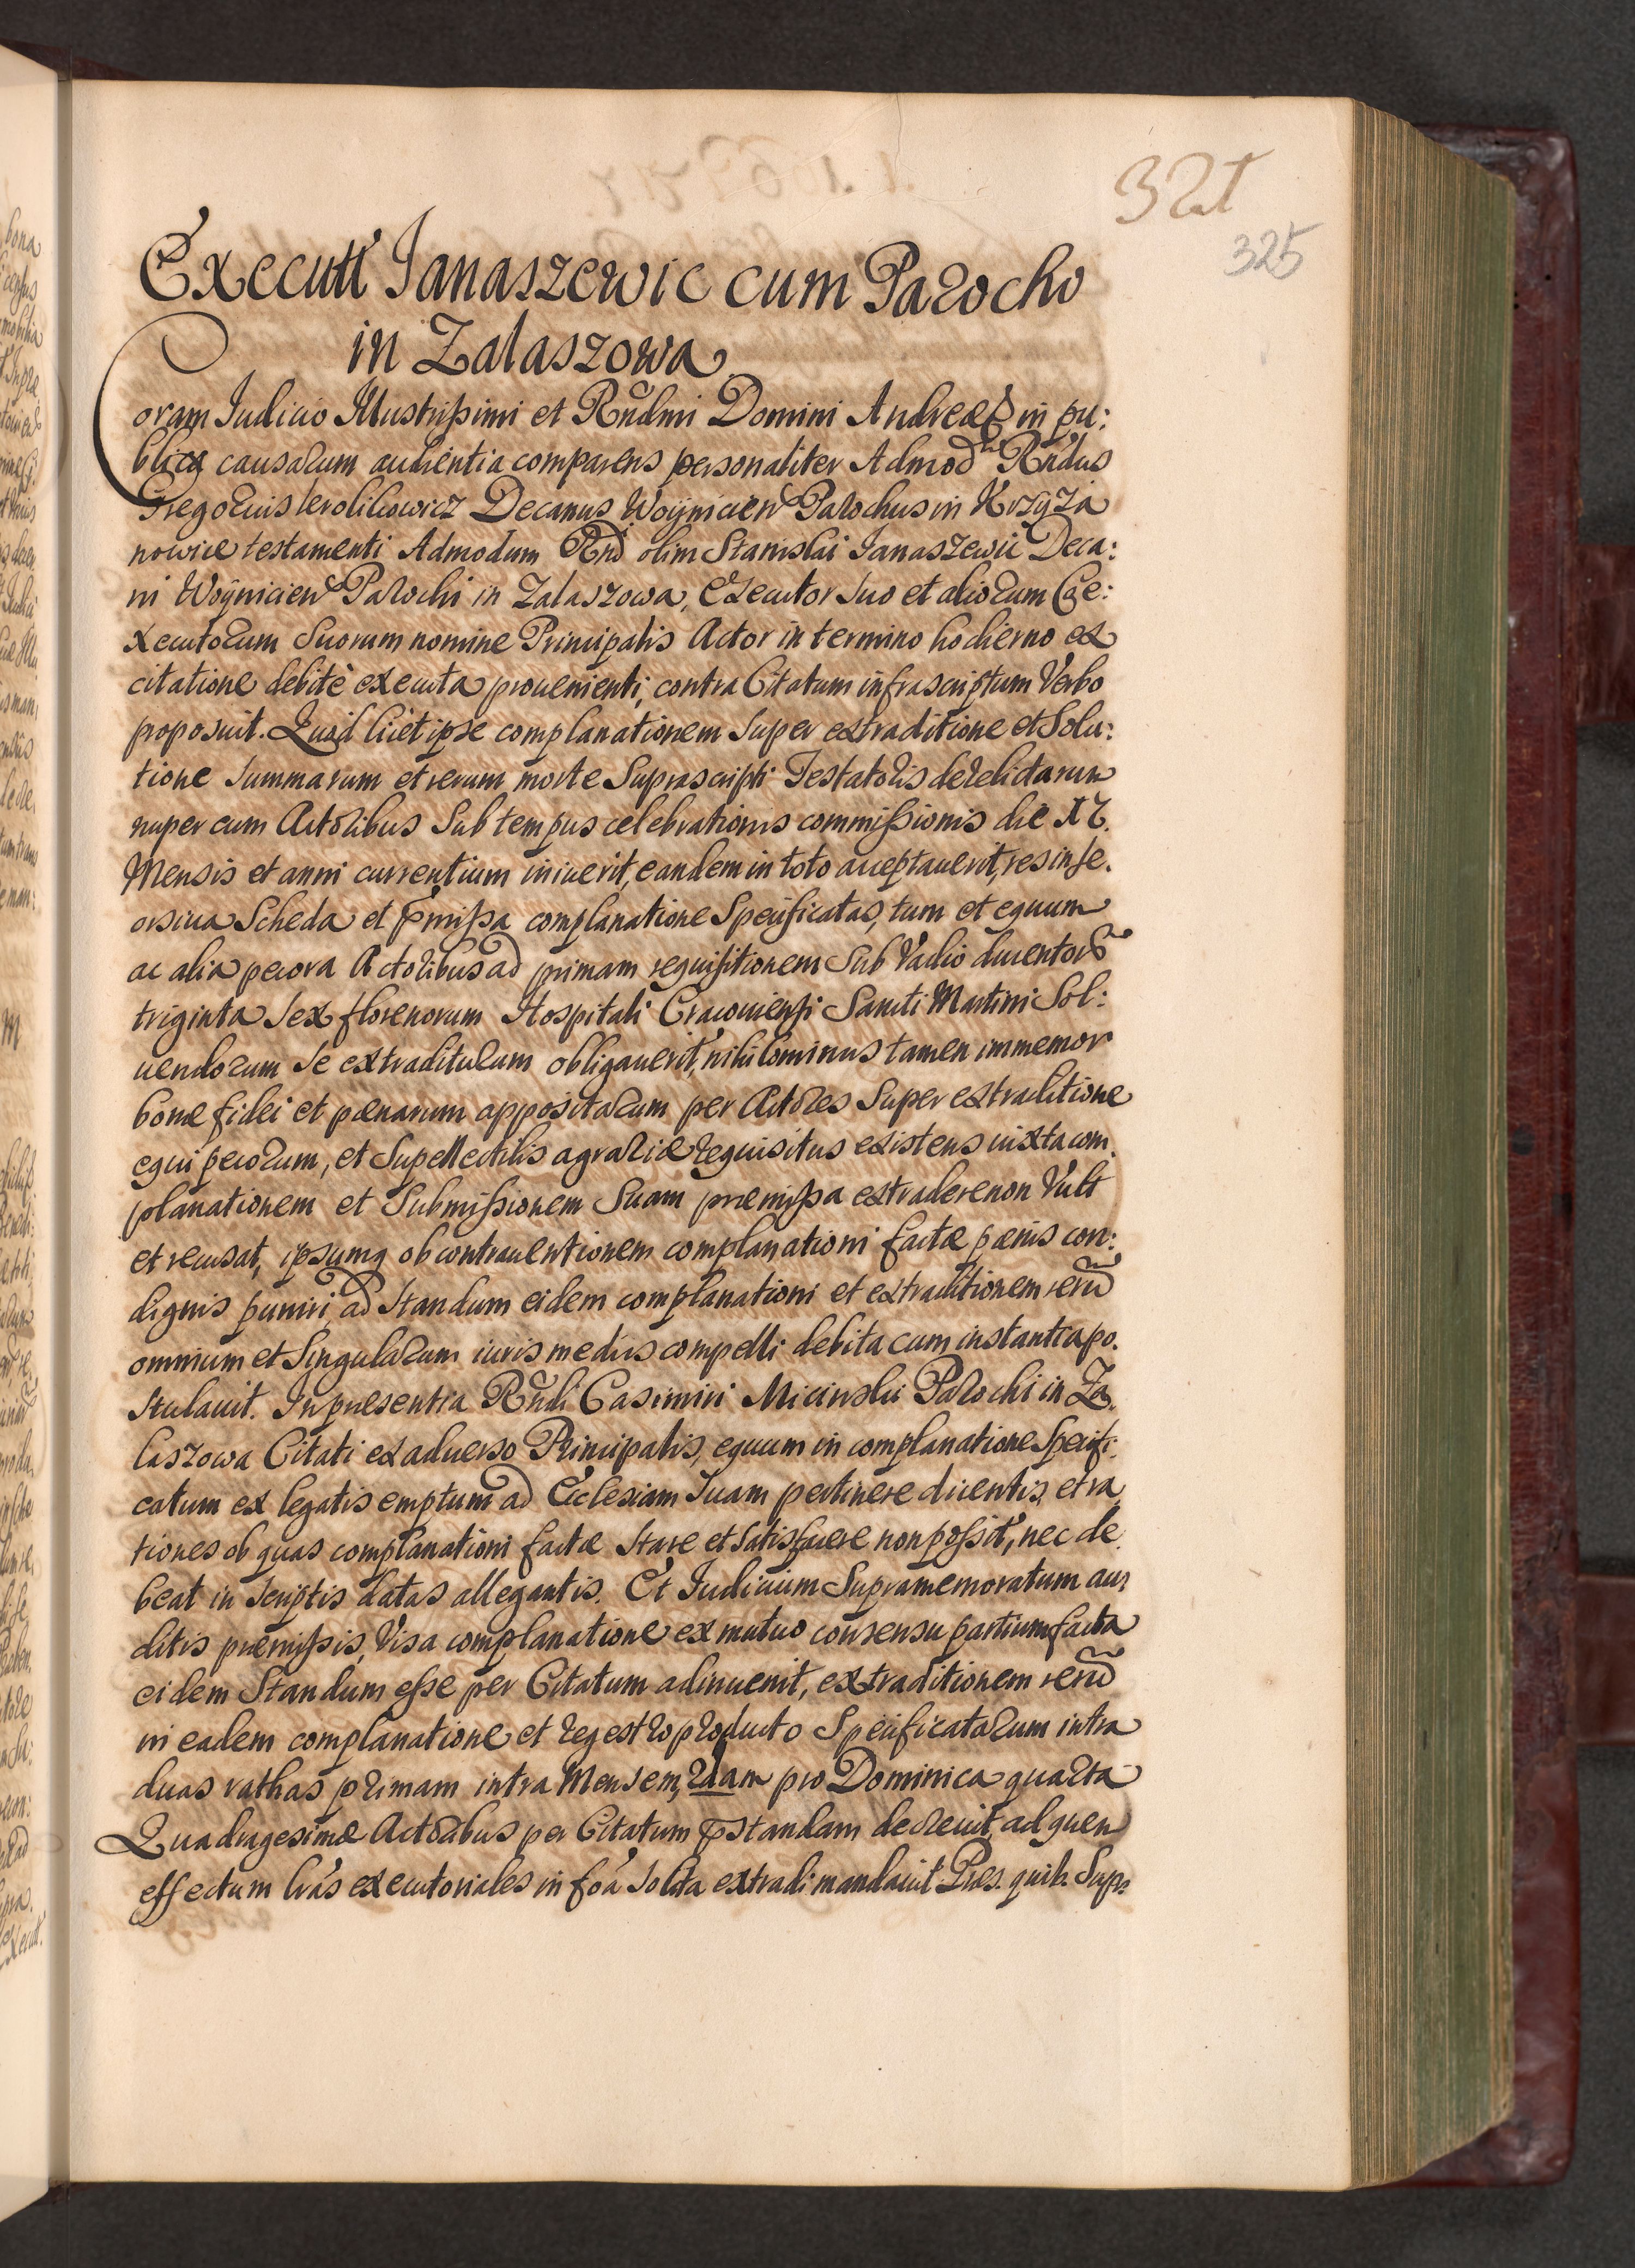 321
325
Executt Janaszewic cum Parocho
in Zalaszowa
Coram Judicio Illustrissimi et Rñdmi Domini Andreæ in pu:
blica causarum audientia comparens personaliter Admod Rñdus
Gregorius Decanus Woÿnicien Parochus in Krzÿża
nowice testamenti Admodum Rnd olim Stanislai Janaszewic Deca:
ni Woÿnicien Parochi in Zalaszowa, Executor suo et aliorum Coe:
xecutorum Suorum nomine Principalis Actor in termino hodierno ex
citatione debitè executa prouenienti, contra Citatum infrascriptum Verbo
proposuit. Quod licet ipse complanationem super extraditione et Solu:
tione summarum et rerum morte Suprascripti Testatoris derelictarum
nuper cum Actoribus Sub tempus celebrationis commissionis die
Mensis et anni currentium iniuerit, eandem in toto acceptauerit, res in se.
orsiua Scheda et pmissa complanatione Specificatas, tum et equum
ac alia pecora Actoribus ad primam requisitionem Sub Vadio ducentor
triginta sex florenorum Hospitali Cracouiensi Sancti Martini Sol:
uendorum se extraditurum obligauerit, nihilominus tamen immemor
bonæ fidei et pœnarum appositarum per Actores Super extraditione
equi pecorum, et Supellectilis agrariæ requisitus existens iuxta com.
planationem et Submissionem Suam præmissa extradere non Vult
et recusat, ipsumq ob contrauentionem complanationi factæ pœnis con:
dignis puniri, ad standum eidem complanationi et extraditionem rerũ
omnium et singularum iuris mediis compelli debita cum instantia po.
stulauit. In præsentia Rñdi Casimiri Micinski Parochi in Za.
laszowa Citati ex aduerso Principalis, equum in complanatione Specifi:
catum ex legatis emptum ad Ecclesiam suam pertinere dicentis, et ra
tiones ob quas complanationi factæ stare et satisfacere non possit, nec de
beat in scriptis datas allegantis. Et Judicium Supramemoratum au
ditis præmissis, Visa complanatione ex mutuo consensu partium facta
eidem Standum esse per Citatum adinuenit, extraditionem rerũ
in eadem complanatione et regestro producto Specificatarum intra
duas rathas primam intra Mensem, 2dam pro Dominica quarta
Quadragesimæ Actoribus per Citatum pstandam decreuit, ad quem
effectum lrás executoriales in foá solita extradi mandauit. Præs. quib. Supr